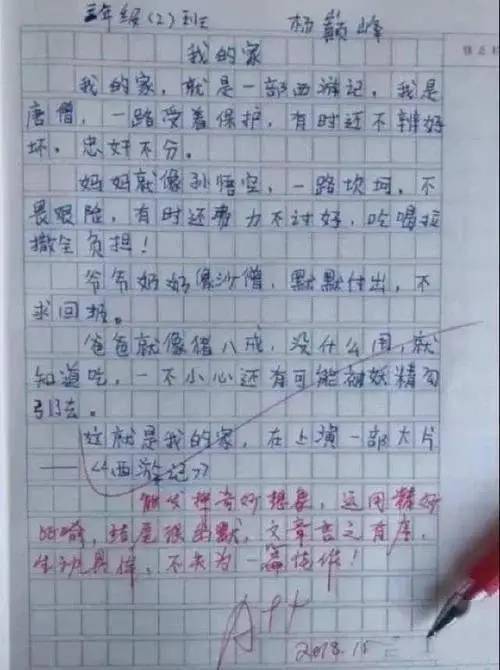 三年级(2)班 杨巅峰
我的家
我的家，就是一部西游记。我是
唐僧，一路受着保护，有时还不辨好
坏。忠奸不分。
妈妈就像孙悟空，一路坎坷，不
畏艰险，有时还费力不讨好，吃喝拉
撒全负担！
爷爷奶奶像沙僧，默默付出，不
求回报。
爸爸就像猪八戒，没什么用，就
知道吃，一不小心还有可能被妖精勾
引去。
这就是我的家，在上演一部大片
——《西游记》
能发挥奇妙想象，运用精妙
比喻，结尾很幽默，文章言之有序，
生动具体，不失为一篇佳作！
A++
2018.10